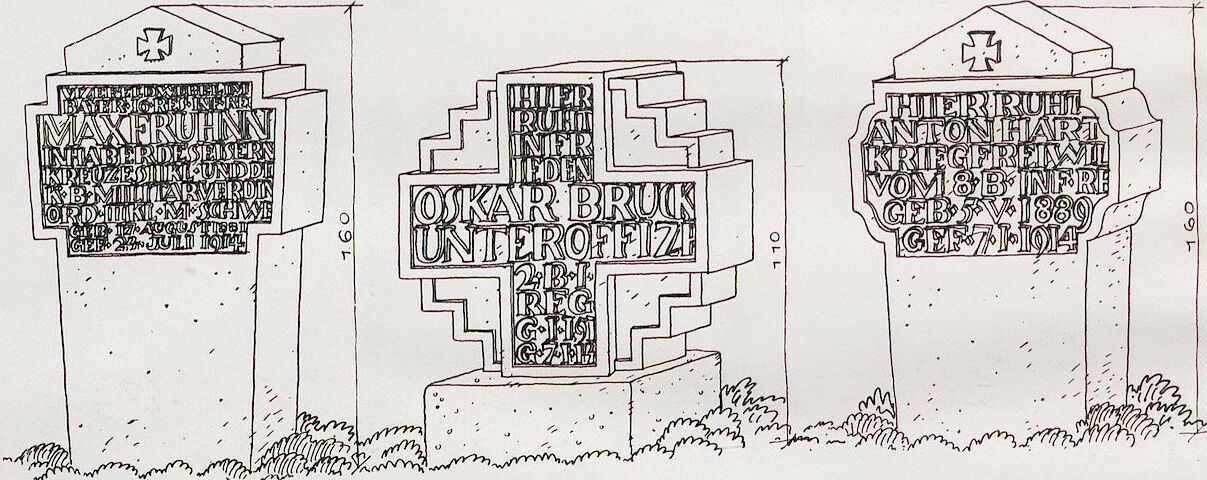 VIZEFELDWEBEL IM
BAYER·16·REI·INF·RE
MAX FRÜHNN
INHABER DES EISERN
KREUZES II KL·UND DE
K·B·MILITÄRVERDIN
ORD·III KL·M·SCHWE
GEB·17·AUGUST 1881
GEF·24·JULI 1914
160
HIER
RUHT
IN FR
IEDEN
OSKAR BRUCK
UNTEROFFIZI
2·B·I·
REG
G·I·191
G·7·I·15
110
HIER RUHT
ANTON HART
KRIEGFREIWIL
VOM 8·B·INF·RE
GEB·5·V·1889
GEF·7·I·1914
160